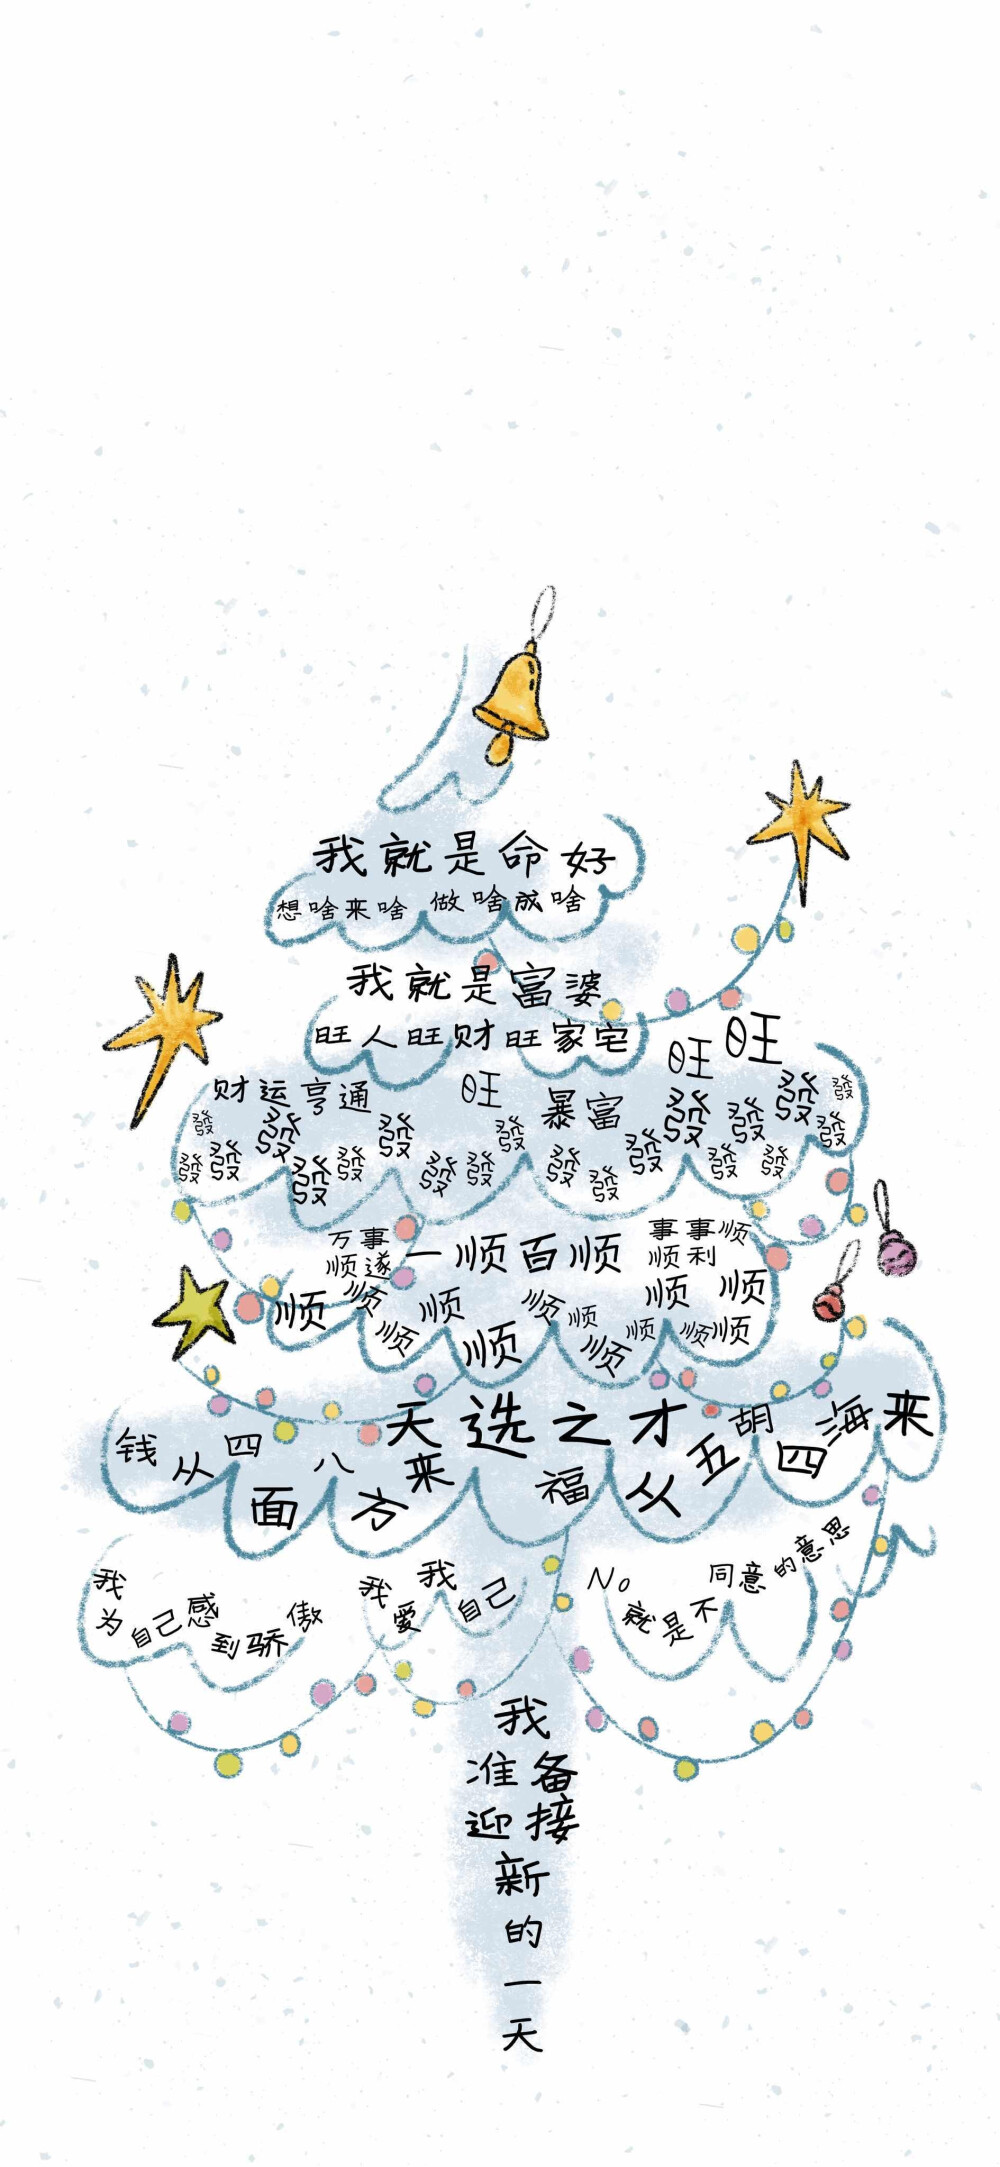 我就是命好
想啥来啥 做啥成啥
我就是富婆
旺人旺财旺家宅
旺 旺
财运亨通 旺 暴富
發 發 發 發 發 發 發 發 發 發 發 發 發 發 發 發 發 發 發 發
万事顺遂
一顺百顺
事事顺
顺利
顺 顺 顺 顺 顺 顺 顺 顺 顺 顺 顺 顺 顺
天选之才
钱从四面八方来
福从五胡四海来
我为自己感到骄傲
我爱我自己
No
就是不同意的意思
我
准备
迎接
新
的
一
天